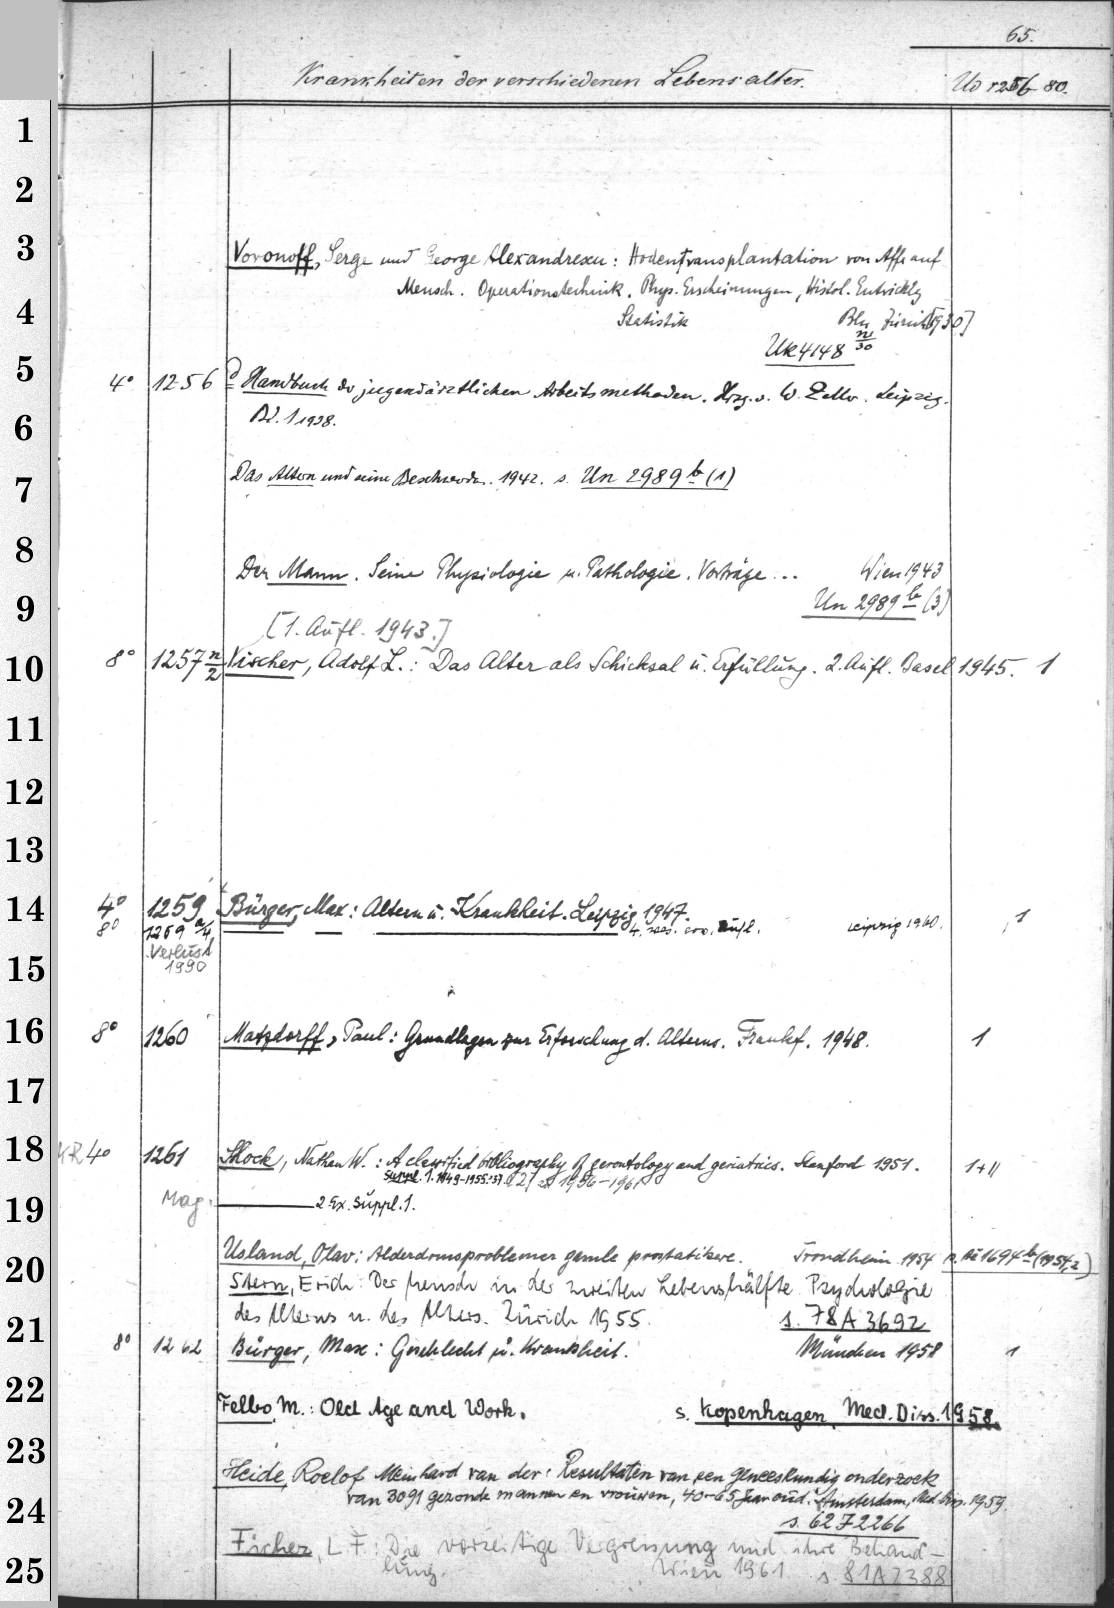 65.
Krankheiten der verschiedenen Lebensalter. Ud 1256 80.
1
2
3 Voronoff, Serge und George Alexandrescu: Hodentransplantation von Affe auf
Mensch. Operationstechnik. Phys. Erscheinungen, Histol. Entwicklg
4 Statistik Bln Zürich [1930]
Uk 4148 n/30
5 4° 1256 d Handbuch der jugendärztlichen Arbeitsmethoden. Hrsg. v. W. Zeller. Leipzig.
6 Bd. 1 1938.
7 Das Altern und seine Beschwerden. 1942. s. Un 2989 b (1)
8 Der Mann. Seine Physiologie u. Pathologie. Vorträge ... Wien 1943
9 Un 2989 b (3)
[1. Aufl. 1943.]
10 8° 1257 n/2 Vischer, Adolf L.: Das Alter als Schicksal u. Erfüllung. 2. Aufl. Basel 1945. 1
11
12
13
14 4° 1259 Bürger, Max: Altern u. Krankheit. Leipzig 1947.
8° 1259 a/4 4. Aufl. Leipzig 1960. 1
Verlust
15 1990
16 8° 1260 Matzdorff, Paul: Grundlagen zur Erforschung d. Alterns. Frankf. 1948. 1
17
18 4° 1261 Shock, Nathan W.: A classified bibliography of gerontology and geriatrics. Stanford 1951. 1+11
Suppl. 1. 1949-1955.'57. [2] 1956-1961
19 Mag. 2 Ex. Suppl. 1.
Usland, Olav: Alderdomsproblemer gamle prostatikere. Trondheim 1954 s. Ae 1694 b (1954,2)
20 Stern, Erich: Der Mensch in der zweiten Lebenshälfte. Psychologie
des Alterns u. des Alters. Zürich 1955. s. 78 A 3692
21 8° 1262 Bürger, Max: Geschlecht u. Krankheit. München 1958 1
22 Felbo, M.: Old Age and Work. s. Kopenhagen, Med. Diss. 1958.
23 Heide, Roelof Meinhard van der: Resultaten van een geneeskundig onderzoek
24 van 3091 gezonde mannen en vrouwen, 40-65 jaar oud. Amsterdam, Med. Diss. 1959.
s. 62 7 2266
Fischer, L. F.: Die vorzeitige Vergreisung und ihre Behand-
25 lung. Wien 1961. s. 81 A 7388